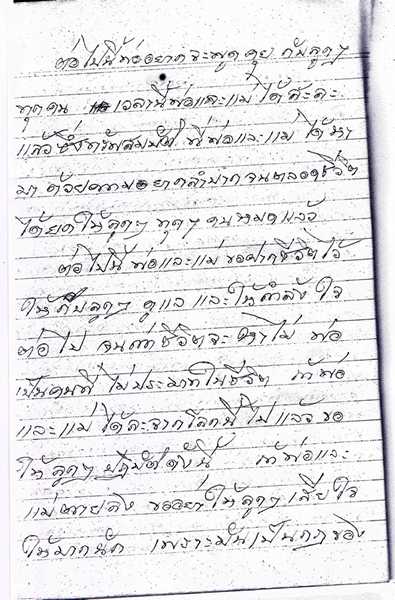 ต่อไปนี้พ่ออยากจะพูดคุย กับลูกๆ
ทุกคน เวลานี้พ่อและแม่ ได้สละ
แล้วซึ่งทรัพย์สมบัติ ที่พ่อและแม่ ได้หา
มา ด้วยความยากลำบาก จนตลอดชีวิต
ได้ยกให้ลูกๆ ทุกๆ คนหมดแล้ว
ต่อไปนี้ พ่อและแม่ ขอฝากชีวิตไว้
ให้กับลูกๆ ดูแล และให้กำลังใจ
ต่อไป จนกว่าชีวิตจะหาไม่ พ่อ
เป็นคนที่ไม่ประมาทในชีวิต ถ้าพ่อ
และแม่ ได้ละจากโลกนี้ไปแล้ว ขอ
ให้ลูกๆ ปฏิบัติดังนี้ ถ้าพ่อและ
แม่ตายลง ขออย่าให้ลูกๆ เสียใจ
ให้มากนัก เพราะมันเป็นกฎของ